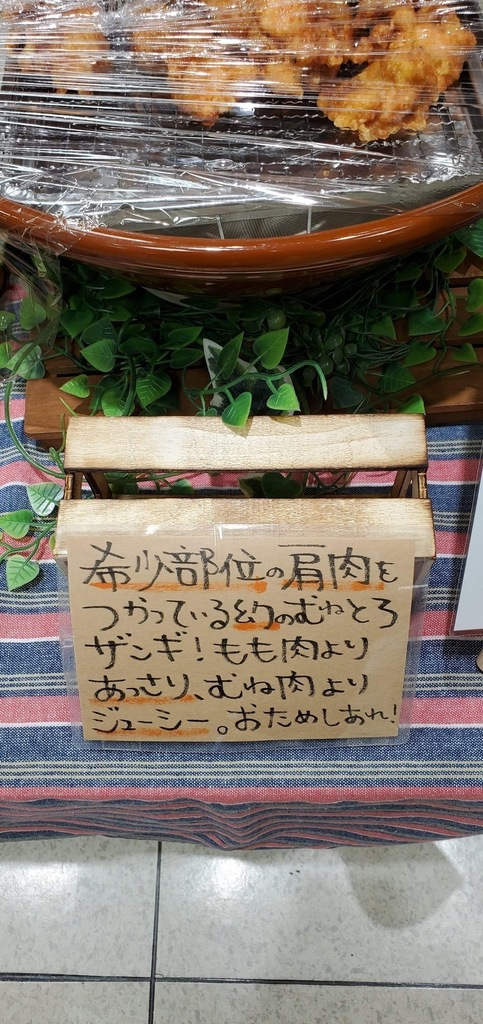 希少部位の肩肉を
つかっている幻のむねとろ
ザンギ!もも肉より
あっさり、むね肉より
ジューシー。おためしあれ!